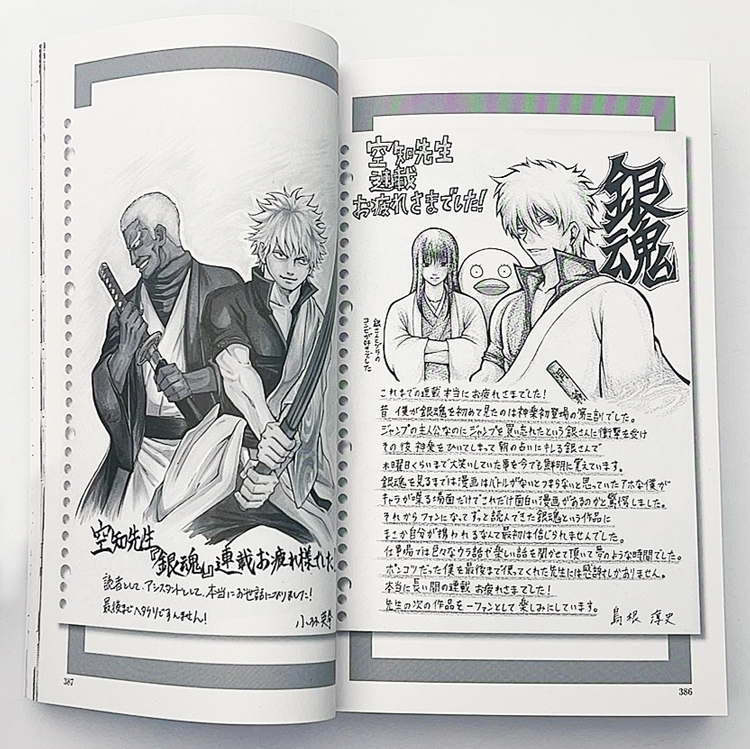 空知先生
連載
お疲れさまでした!
銀魂
銀さんとヅラの
コンビが好きでした
これまでの連載 本当に お疲れさまでした!
昔 僕が銀魂を初めて見たのは神楽初登場の第三訓でした。
ジャンプの主人公なのにジャンプを買い忘れたという銀さんに衝撃を受け
その後 神楽をひいてしまって 朝の占いにキレる銀さんで
木曜日くらいまで大笑いしていた事を今でも鮮明に覚えています。
銀魂を見るまでは漫画はバトルがないとつまらないと思っていたアホな僕が
キャラが喋る場面だけでこれだけ面白い漫画があるのかと驚愕しました。
それからファンになってずっと読んできた銀魂という作品に
まさか自分が携われるなんて最初は信じられませんでした。
仕事場では色々なウラ話や楽しい話を聞かせて頂いて夢のような時間でした。
ポンコツだった僕を最後まで使ってくれた先生には感謝しかありません。
本当に長い間の連載 お疲れさまでした!
先生の次の作品を一ファンとして楽しみにしています。
島根 淳史
386
空知先生
『銀魂』連載お疲れ様でした
読者として、アシスタントとして、本当にお世話になりました!
最後までヘタクソですんません!
小林
387